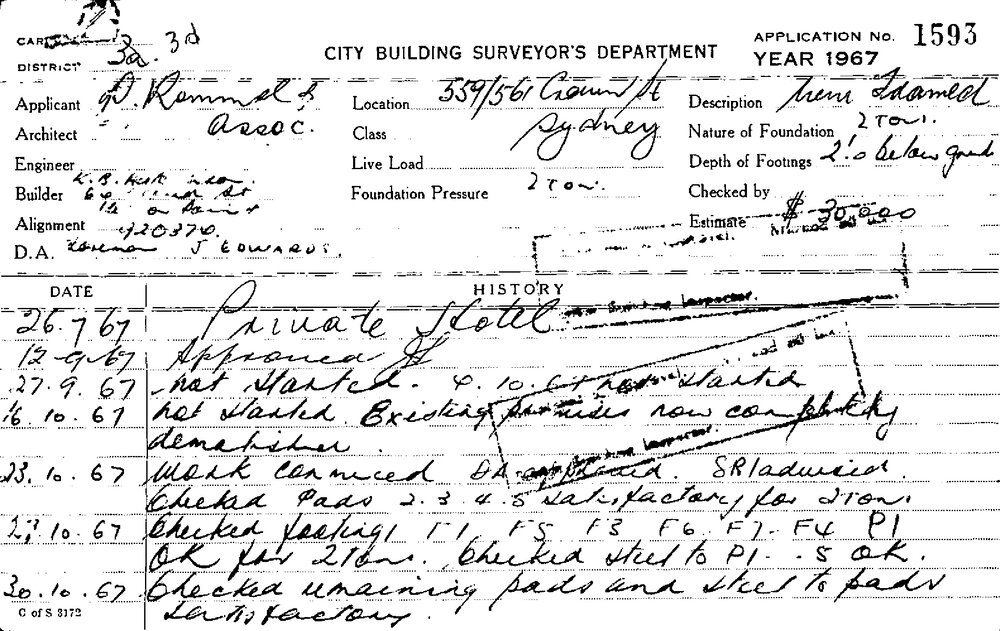 CARD 3d
DISTRICT 3a.
CITY BUILDING SURVEYOR'S DEPARTMENT
APPLICATION No. 1593
YEAR 1967
Applicant D. Rommel &
Architect " Assoc.
Engineer
Builder K.B.
Alignment 420370
D.A. Foreman J EDWARDS.
Location 559/561 Crown St
Class Sydney
Live Load
Foundation Pressure 2 Ton.
Description New
Nature of Foundation 2 Ton.
Depth of Footings 2'.0 below grnd
Checked by
Estimate $ 30,000
DATE HISTORY
26.7 67 Private Hotel
12-9-67 Approved
27.9.67 not started. 4.10.67 not started
16.10.67 not started Existing premises now completely
demolished.
23.10.67 Work commenced approved. SR1 advised.
Checked Pads 2.3 4.5 satisfactory for 2 Ton.
27.10.67 Checked footings F1 F5 F3 F6. F7. F4 P1
OK for 2 Ton. Checked steel to P1 - 5 OK.
30.10.67 Checked remaining pads and steel to pads
satisfactory.
Building Inspector.
Inspector.
C of S 3172